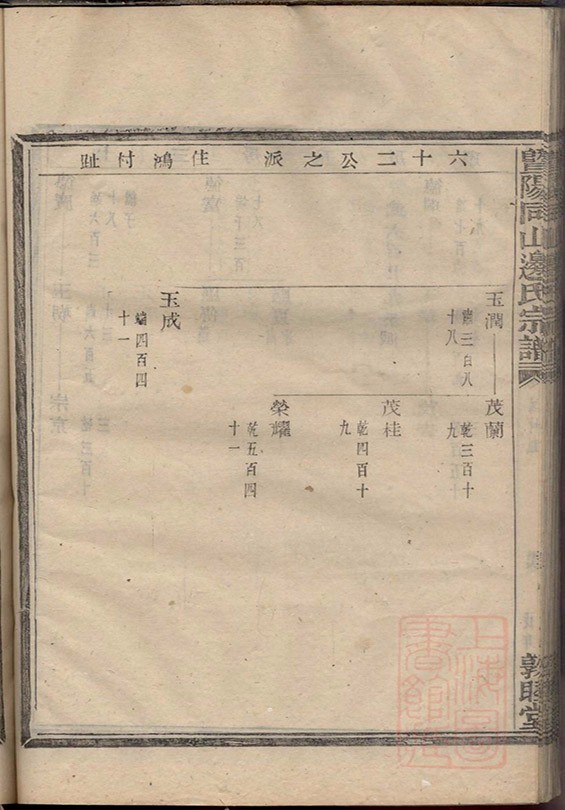 暨陽同山邊氏宗譜
敦睦堂
六十二公之派 住鴻村趾
玉潤
聰三百八
十八
茂蘭
乾三百十
九
茂桂
乾四百十
九
榮耀
乾五百四
十一
玉成
聰四百四
十一
上海圖書館藏